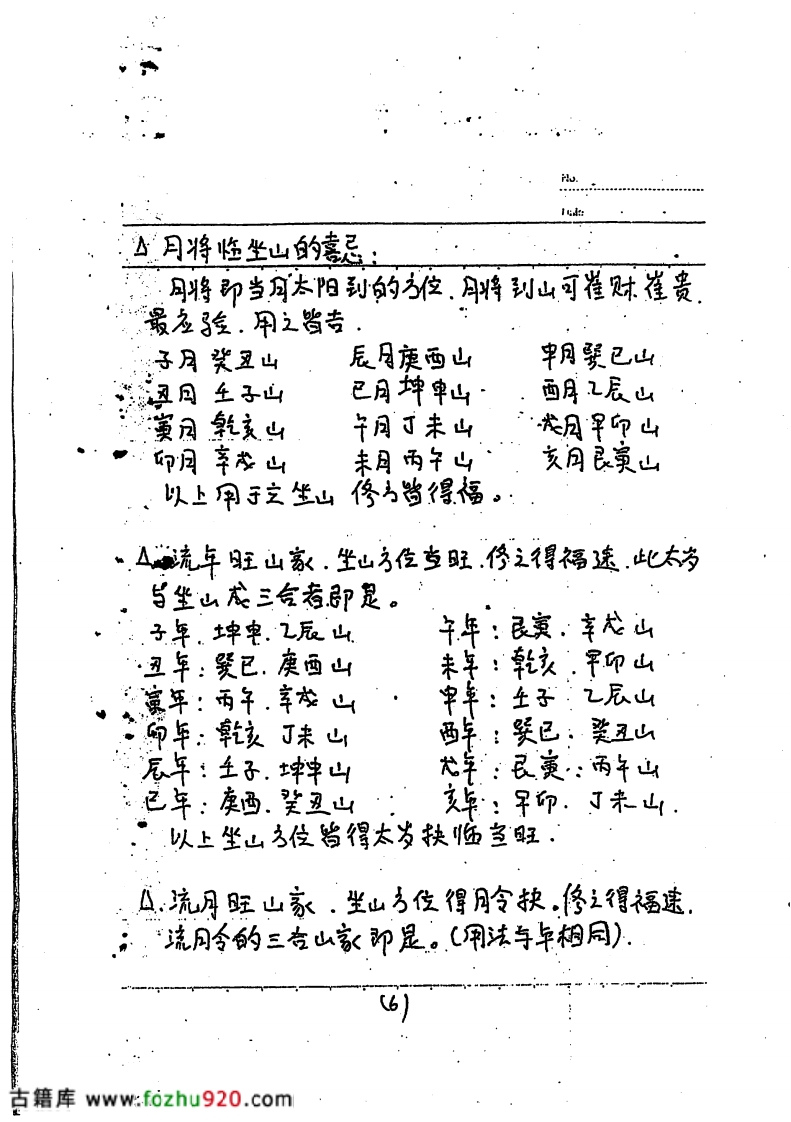 No.
Date
△ 月将临坐山的喜忌：
月将即当月太阳到的方位．月将到山可崔财崔贵．
最应验．用之皆吉．
子月癸丑山 辰月庚酉山 申月巽巳山
丑月 壬子山 巳月坤申山 酉月乙辰山
寅月 乾亥山 午月丁未山 戌月甲卯山
卯月 辛戌山 未月丙午山 亥月艮寅山
以上用于立坐山 修方皆得福。
△ 流年旺山家．坐山方位当旺．修之得福速．此太岁
与坐山成三合者即是。
子年．坤申．乙辰山 午年：艮寅．辛戌山
丑年：巽巳．庚酉山 未年：乾亥．甲卯山
寅年：丙午．辛戌山 申年：壬子 乙辰山
卯年：乾亥 丁未山 酉年：巽巳．癸丑山
辰年：壬子．坤申山 戌年：艮寅．丙午山
巳年：庚酉．癸丑山 亥年：甲卯．丁未山．
以上坐山方位皆得太岁扶临当旺．
△．流月旺山家．坐山方位得月令扶。修之得福速．
流月令的三合山家即是。（用法与年相同）．
(6)
古籍库 www.fozhu920.com